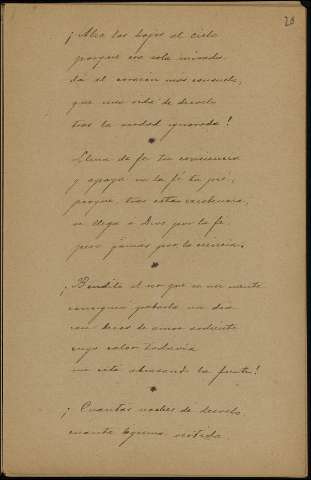 20
¡Alza los ojos al cielo
porque una sola mirada
da al corazón mas consuelo,
que una vida de desvelo
tras la verdad ignorada!
Llena de fe tu conciencia
y apoya en la fé tu pié,
porque, tras esta existencia,
se llega á Dios por la fé,
pero jamás por la ciencia.
¡Bendito el ser que en mi mente
consiguió grabarla un dia
con besos de amor ardiente
cuyo calor todavia
me está abrasando la frente!
¡Cuantas noches de desvelo,
cuanta lágrima vertida